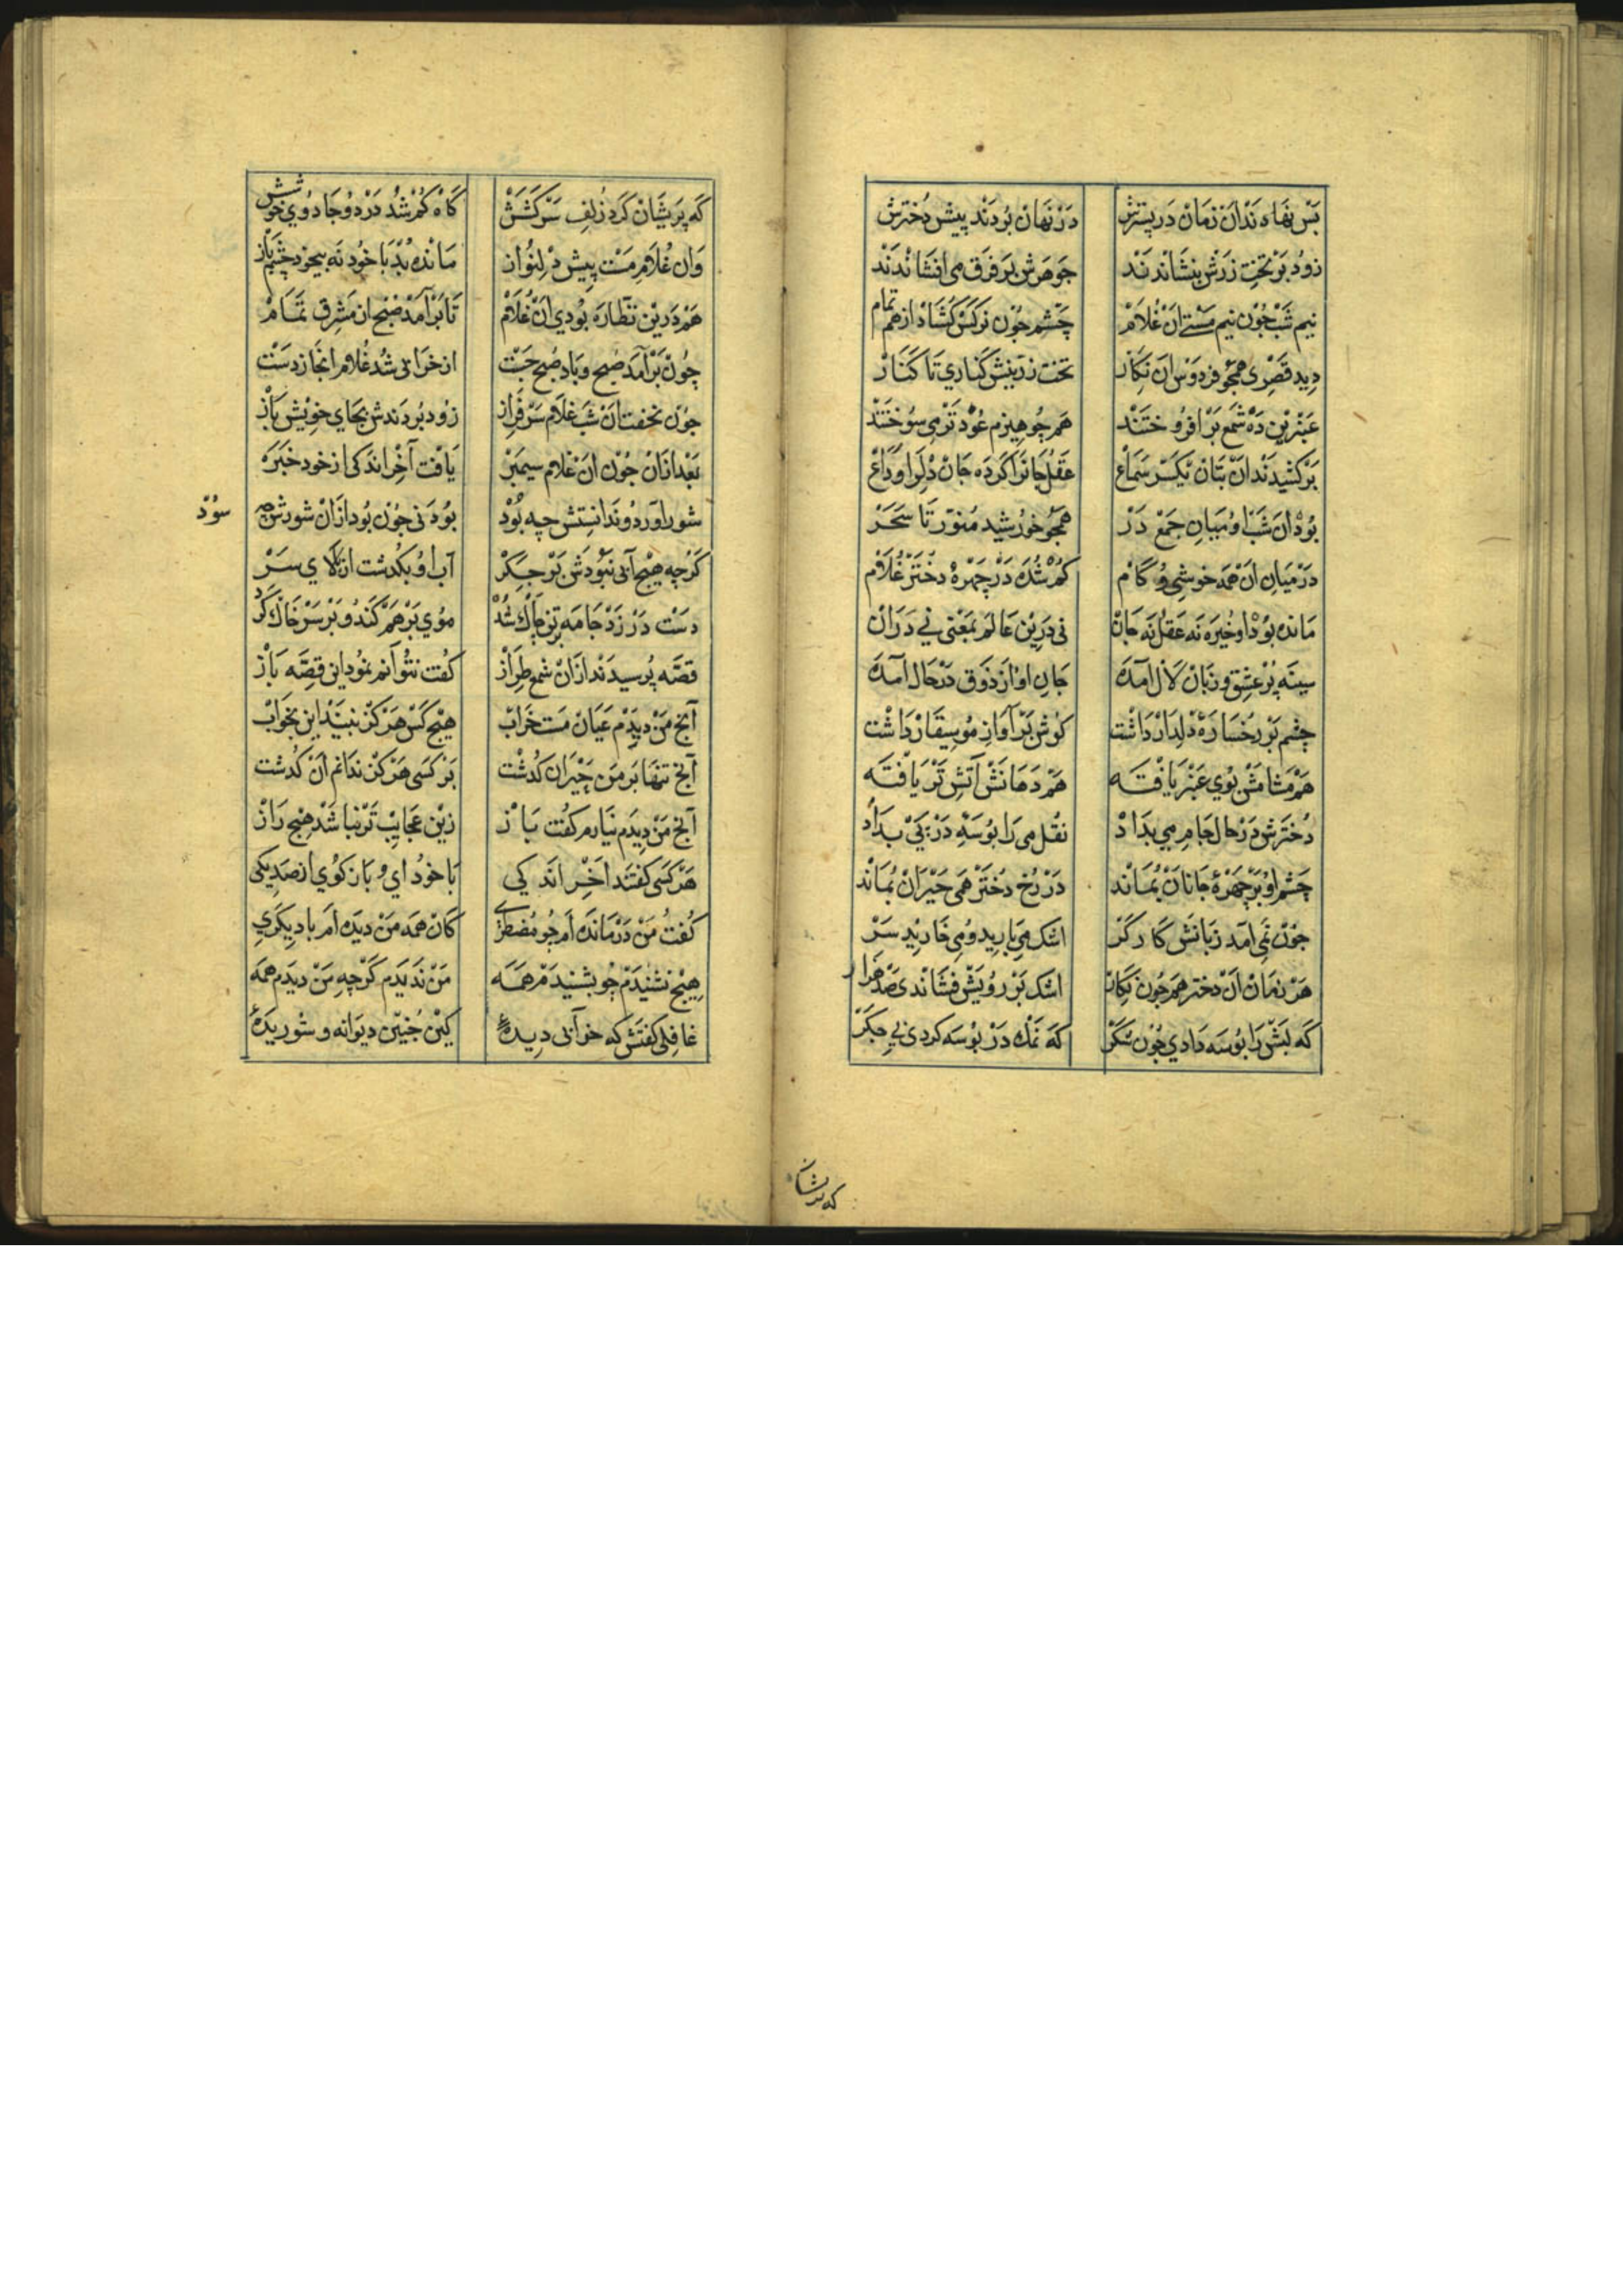 بَسْ نهَادندْ آن زَمَانْ دَر بسترَش دَرْ نَهَانْ بُردَند پیشِ دُخترش
زودْ بَر تختِ زرَش بنشَاندند جَوهَرش بر فَرق می افشَاندند
نیم شب جُون نیم مَستی آن غُلَامْ چَشم جُون نَرکَسْ کُشَاد از هَم تمام
دید قَصْری همجُو فردوسْ آن نِکَار تخت زرّینش کَنَاری تَا کَنَارْ
عَنْبَرین دَه شَمع بَر افرُوختند هَمجُو هیزم عُود تَر می سُوختند
برکشیدند آن بُتانْ یکسَر سَمَاع عَقل جَانرا کَردَه جَانْ دلرا وِدَاعْ
بُود آن شَب او میَانِ جمع دَرْ همجُو خُورشید مُنوّر تَا سَحَرْ
دَر میَانِ آن همَه خوشی وُ کَام کُم شُده دَرْ جهرهٔ دختَر غُلَامْ
مَانده بُود او خیره نَه عَقل نَه جَانْ نی دَرین عَالم بمعنی نی دَرَانْ
سینَه پُر عشق و زبَانْ لَال آمَده جَانِ او از ذَوق دَر حَال آمَده
جشم بَر رخسَارهٔ دلدَار دَاشت کوش بَر آوَازِ مُوسیقَار دَاشت
هَم مَشَامَش بُوی عَنْبَر یَافتَه هَم دَهَانَش آتش تَر یَافتَه
دُخترش دَر حَال جَامِ می بدَادْ نقل می رَا بُوسَهٔ دَر پَی بدَادْ
چَشم او بَر جهرهٔ جَانان بمَاند دَر رُخِ دُختَر همَی حَیرَان بمَاند
جون نمی آمد زبَانَش کَارکَر اشک می بَارید وُ می خَارید سَرْ
هَر زمَان آن دختر همجُون نِکَار اشک بَر رُویَش فشَاندی صَد هَزار
کَه لبَش رَا بُوسَه دَادی جُون شکَر کَه نمَک دَر بُوسَه کردی بی جِکَرْ
که پریشان
کَه پَریشَان کَرد زُلفِ سَرکَشَش کَاه کُم شُد دَر دو جَادوی خوشش
وَان غُلَامِ مَست پیش دِلنُواز مَانده بُد بَا خُود نَه بیخود جَشم بَاز
هَم دَرین نظَّارَه بُودی آن غُلَامْ تَا بَرآمَد صُبح از مَشرق تمَامْ
چُون بَرآمَد صُبح وبَاد صُبح جَست از خرَابی شُد غُلَام آنجَا ز دَست
جون بخفت آن شَب غُلام سَرفَراز زُود بُردندش بجَای خویش بَاز
بَعْد ازَان جُون آن غُلَام سیمبَرْ یَافت آخر اندَکی از خود خَبَرْ
شور آورد و ندَانستش چه بُودْ بُودنی جُون بُود ازَان شورش چه
سُودْ
کَرجه هیچ آبی نبُودش بَر جِکَر آب او بکذشت از بَالای سَرْ
دَست دَر زَد جَامَه بَر تن چَاک شُد مُوی بَر هم کند و بَر سَر خَاک کَرد
قصَّه پُرسیدند ازَان شمع طِرَاز کَفت نتوَانم نمُود این قصّه بَاز
آنچ مَنْ دیدم عیَان مَست خَرَابْ هیچ کَس هَرکز نبیند این بخوَابْ
آنچ تنهَا بَر مَنِ حیرَان کَذشت بَر کَسی هَرکز ندَانم آن کَذشت
آنچ مَن دیدَم نیَارم کَفت بَاز زین عَجَایب تر نبَاشد هیچ رَاز
هَر کَسی کَفتند آخر اندکی بَا خُود آی و بَاز کوی از صَد یکی
کُفت مَنْ دَرمَانده اَم جُو مُضطری کَان همَه مَن دیده اَم یا دیکَری
هیچ نشنیدم جُو بشنیدم همَه مَن ندیدم کَرچه مَن دیدم همَه
غافلی کَفتش که خوابی دیدهٔ کین جنین دیوَانه و شوریدهٔ